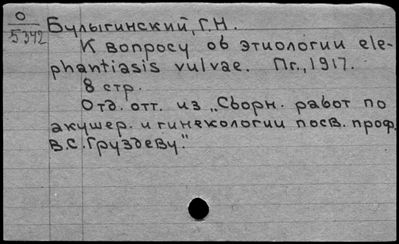 О
5342
Булыгинский, Г.Н.
К вопросу об этиологии ele-
phantiasis vulvae. Пг., 1917.
8 стр.
Отд. отт. из „Сборн. работ по
акушер. и гинекологии посв. проф.
В.С. Груздеву".